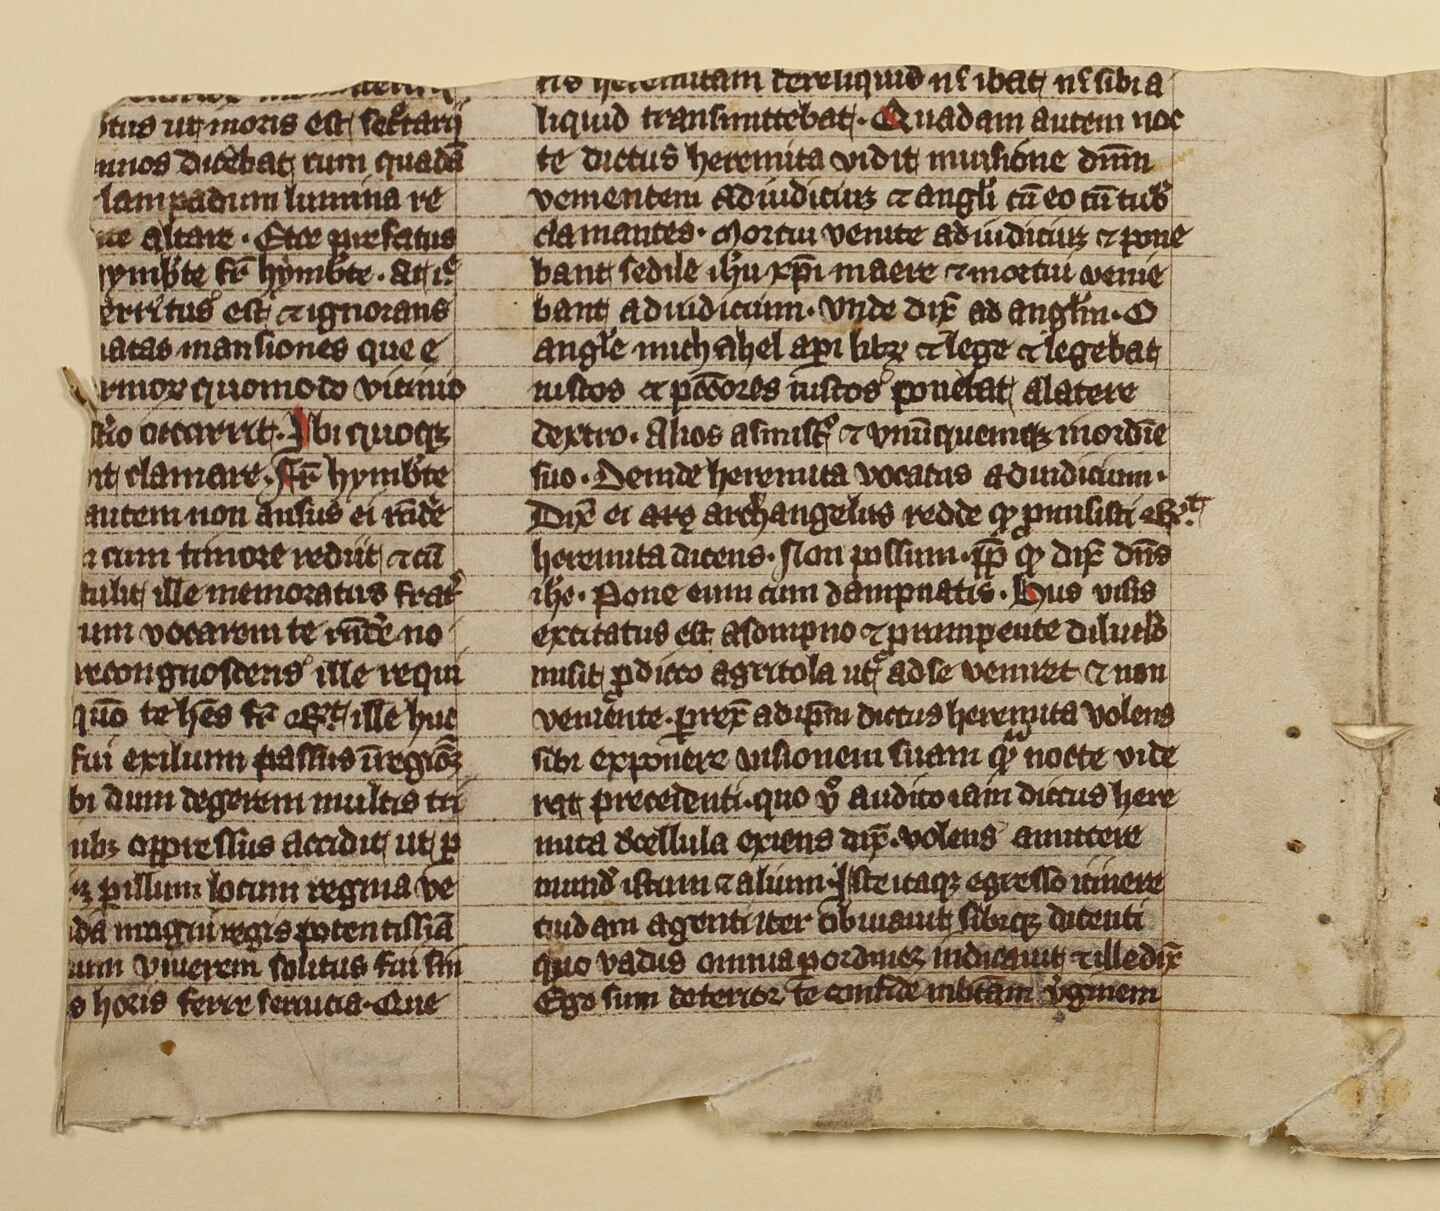 itus ut moris est secretarij
nnos dicebat cum quadā
lampadum lumina re
ne altare · Ecce prefatus
hymbte fr̄ hymbte · at ip̄e
erritus est ⁊ ignorans
uatas mansiones que e
quomodo vicinio
occurrit · Ibi quoqꝫ
it clamare · Fr̄ hymbte
autem non ausus ei rn̄dere
cum timore rediit ⁊ cū
tulit ille memoratus frat
um vocarem te rn̄dere no
recongnoscens ille requi
quō te hēs fr̄ Et ille huc
fui exilium passus ī regiōe
bi dum degerem multis tri
nibꝫ oppressus accidit ut p
ꝑ illum locum regina ve
dā magni regis potentissīa
um viuerem solitus fui sīn
s horis ferre seruicia · Que
tis heremitam dereliquid nec ibat nec sibi a
liquid transmittebat · Quadam autem noc
te dictus heremita vidit in visione dn̄m
venientem ad iudiciuꝫ ⁊ angl'i cū eo cū tub'
clamantes · Mortui venite ad iudiciuꝫ ⁊ pone
bant sedile ih'u xp̄i in aere ⁊ mortui venie
bant ad iudicium · Vnde dix̄ ad angl'm · O
angl'e michahel aperi librꝫ ⁊ lege ⁊ legebat
iustos ⁊ pcc̄ores iustos ponebat a latere
dextro · Alios a sinist° ⁊ vnūquemqꝫ in ordīe
suo · Deinde heremita vocatus ad iudicium ·
Dix̄ ei archangelus redde qd̄ ꝓmisisti Et
heremita dicens · Non possum · pp̄ qd̄ dix̄ dn̄s
ih'c · Pone eum cum dampnatis · Hiis visis
excitatus est a sompno ⁊ prumpente diluc'lo
misit ꝓ dicto agricola ut ad se veniret ⁊ non
veniente · ꝑrex̄ ad ip̄m dictus heremita volens
sibi exponere visionem suam qm̄ nocte vide
rat precedenti · quo v° audito iam dictus here
mita de cellula exiens dix̄ · volens amittere
mund' istum ⁊ alium · Iste itaqꝫ egresso itinere
cuidam agenti iter obuiauit sibiqꝫ dicenti
quo vadis omnia ꝑ ordineꝫ indicauit ⁊ ille dix̄
Ego sum deterior te confide in btām v'ginem